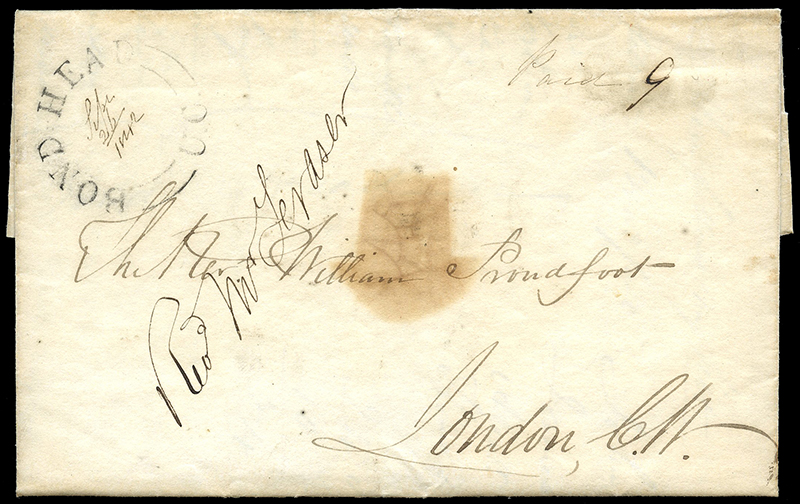 BOND HEAD
U.C
Sep 26
1842
Paid 9
Revd Mr Fraser
The Rev William Proudfoot
London, C.W.